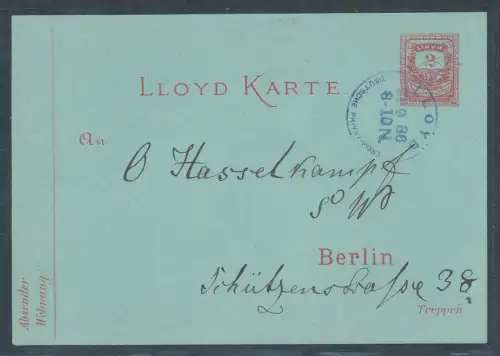 Lloyd
2
LLOYD KARTE.
LLOYD
DEUTSCHE PRIVAT
9 86
8-10 N.
An
O Hasselkampf
SW
Berlin
Schützenstraße 38
Treppen
Absender
Wohnung